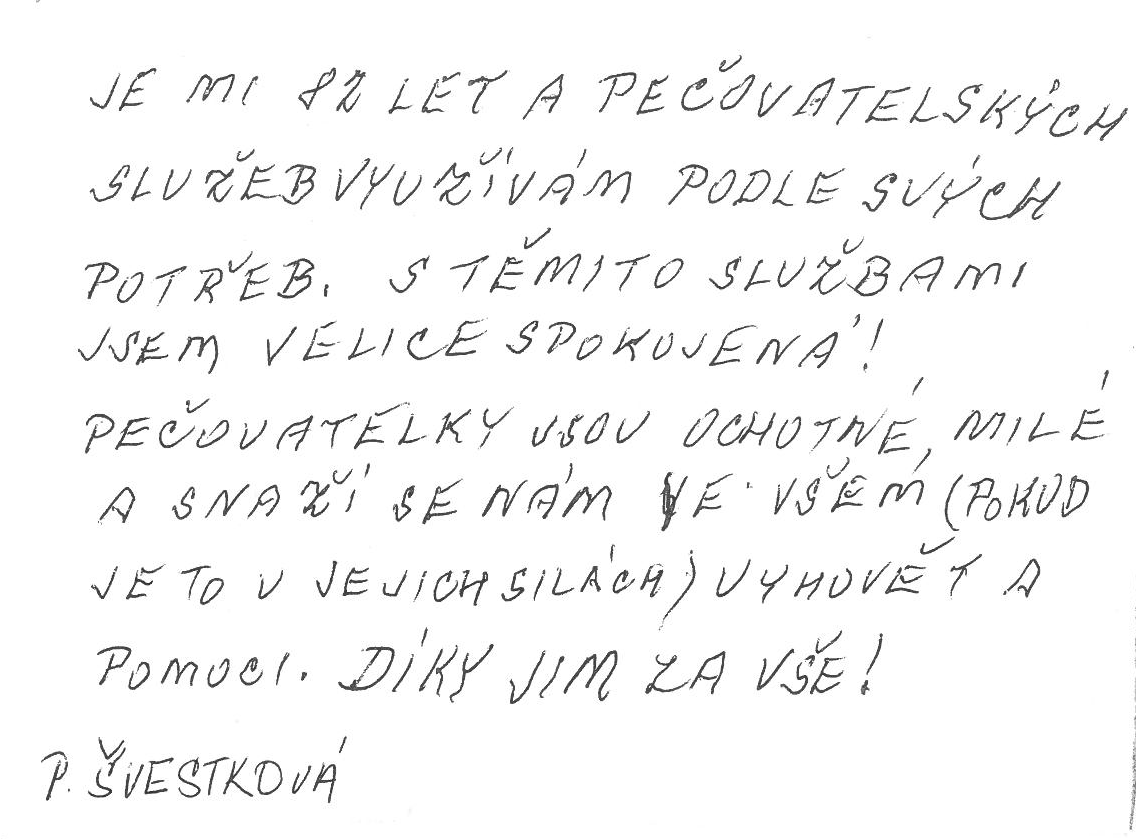 JE MI 82 LET A PEČOVATELSKÝCH
SLUŽEB VYUŽÍVÁM PODLE SVÝCH
POTŘEB. S TĚMITO SLUŽBAMI
JSEM VELICE SPOKOJENÁ!
PEČOVATELKY JSOU OCHOTNÉ, MILÉ
A SNAŽÍ SE NÁM VE VŠEM (POKUD
JE TO V JEJICH SILÁCH) VYHOVĚT A
POMOCI. DÍKY JIM ZA VŠE!
P. ŠVESTKOVÁ